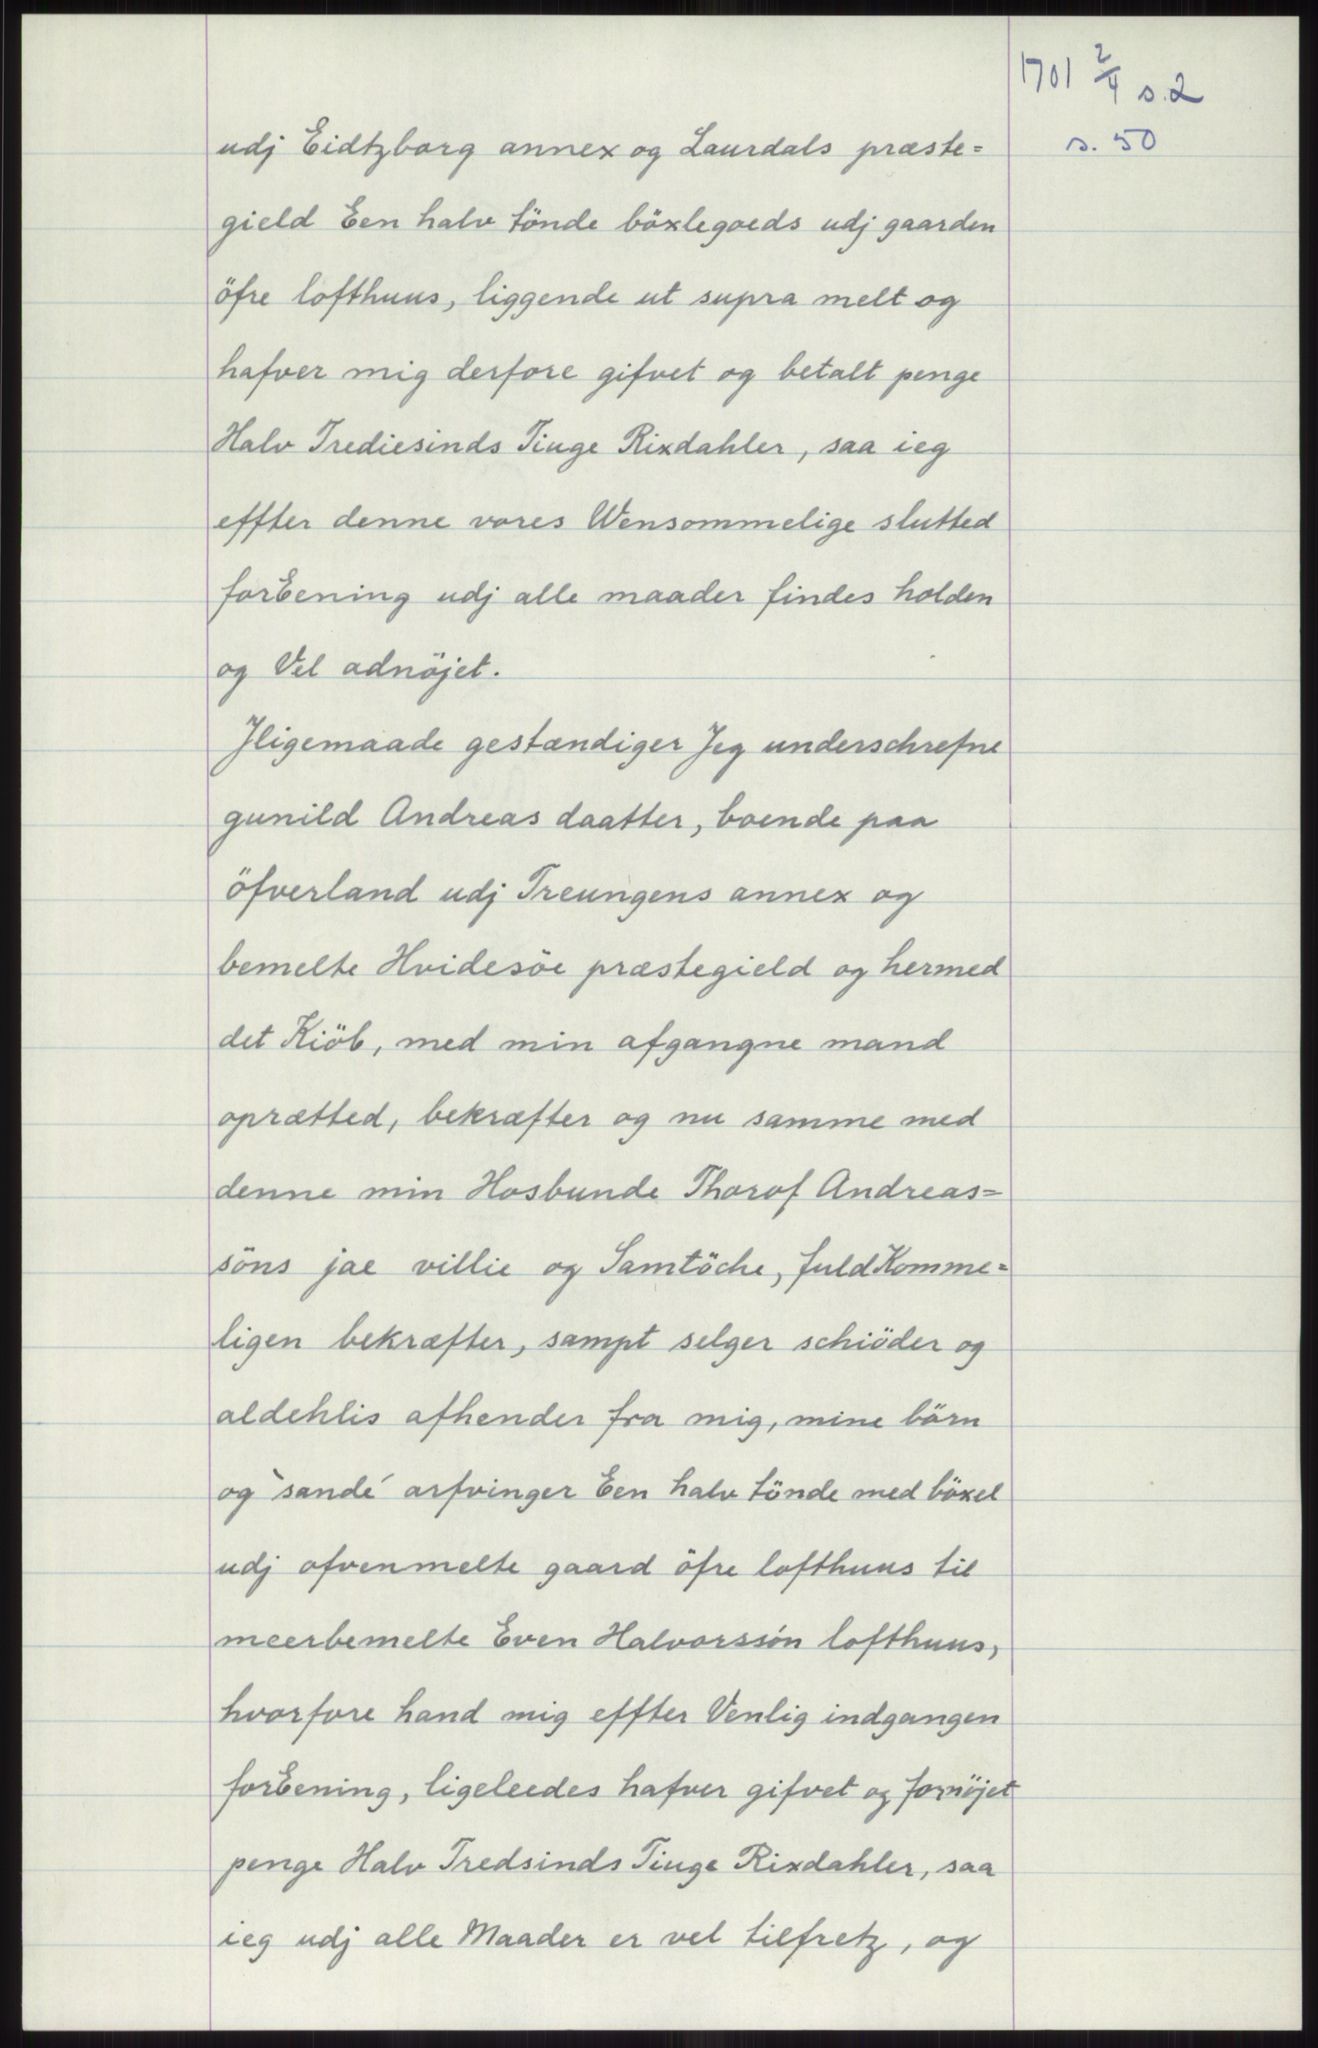 1701 2/4 s.2
s. 50
udj Eidtzborg annex og Laurdals præste=
gield Een halv tönde böxlegoeds udj gaarden
öfre lofthuus, liggende ut supra melt og
hafver mig derfore gifvet og betalt penge
Halv Trediesinds Tiuge Rixdahler, saa ieg
effter denne vores Wensommelige slutted
forEening udj alle maader findes holden
og Vel adnöjet.
Jligemaade gestændiger Jeg underschrefne
gunild Andreas daatter, boende paa
öfverland udj Treungens annex og
bemelte Hvidesöe præstegield og hermed
det Kiöb, med min afgangne mand
oprætted, bekræfter og nu samme med
denne min Hosbunde Thorof Andreas=
söns jae villie og Samtöche, fuldKomme=
ligen bekræfter, sampt selger schiöder og
aldehlis afhender fra mig, mine börn
og `sande´ arfvinger Een halv tönde med böxel
udj ofvenmelte gaard öfre lofthuus til
meerbemelte Even Halvorssón lofthuus,
hvorfore hand mig effter Venlig indgangen
forEening, ligeleedes hafver gifvet og fornöjet
penge Halv Tredsinds Tiuge Rixdahler, saa
ieg udj alle Maader er vel tilfretz, og